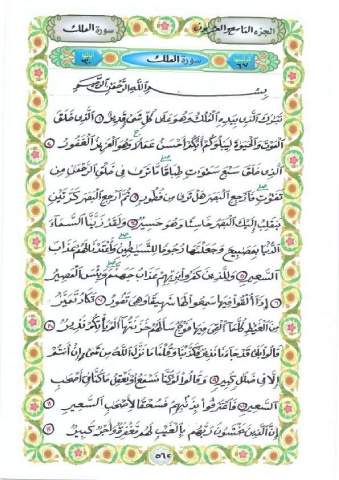 الجزء التاسع والعشرون سورة الملك
٦٧ سورة الملك ٣٠
بِسْمِ اللَّهِ الرَّحْمَٰنِ الرَّحِيمِ
تَبَٰرَكَ الَّذِي بِيَدِهِ الْمُلْكُ وَهُوَ عَلَىٰ كُلِّ شَيْءٍ قَدِيرٌ ١ الَّذِي خَلَقَ
الْمَوْتَ وَالْحَيَوٰةَ لِيَبْلُوَكُمْ أَيُّكُمْ أَحْسَنُ عَمَلًا وَهُوَ الْعَزِيزُ الْغَفُورُ ٢
الَّذِي خَلَقَ سَبْعَ سَمَٰوَٰتٍ طِبَاقًا مَا تَرَىٰ فِي خَلْقِ الرَّحْمَٰنِ مِنْ
تَفَٰوُتٍ فَارْجِعِ الْبَصَرَ هَلْ تَرَىٰ مِنْ فُطُورٍ ٣ ثُمَّ ارْجِعِ الْبَصَرَ كَرَّتَيْنِ
يَنْقَلِبْ إِلَيْكَ الْبَصَرُ خَاسِئًا وَهُوَ حَسِيرٌ ٤ وَلَقَدْ زَيَّنَّا السَّمَاءَ
الدُّنْيَا بِمَصَٰبِيحَ وَجَعَلْنَٰهَا رُجُومًا لِلشَّيَٰطِينِ وَأَعْتَدْنَا لَهُمْ عَذَابَ
السَّعِيرِ ٥ وَلِلَّذِينَ كَفَرُوا بِرَبِّهِمْ عَذَابُ جَهَنَّمَ وَبِئْسَ الْمَصِيرُ
٦ إِذَا أُلْقُوا فِيهَا سَمِعُوا لَهَا شَهِيقًا وَهِيَ تَفُورُ ٧ تَكَادُ تَمَيَّزُ
مِنَ الْغَيْظِ كُلَّمَا أُلْقِيَ فِيهَا فَوْجٌ سَأَلَهُمْ خَزَنَتُهَا أَلَمْ يَأْتِكُمْ نَذِيرٌ ٨
قَالُوا بَلَىٰ قَدْ جَاءَنَا نَذِيرٌ فَكَذَّبْنَا وَقُلْنَا مَا نَزَّلَ اللَّهُ مِنْ شَيْءٍ إِنْ أَنْتُمْ
إِلَّا فِي ضَلَٰلٍ كَبِيرٍ ٩ وَقَالُوا لَوْ كُنَّا نَسْمَعُ أَوْ نَعْقِلُ مَا كُنَّا فِي أَصْحَٰبِ
السَّعِيرِ ١٠ فَاعْتَرَفُوا بِذَنْبِهِمْ فَسُحْقًا لِأَصْحَٰبِ السَّعِيرِ ١١
إِنَّ الَّذِينَ يَخْشَوْنَ رَبَّهُمْ بِالْغَيْبِ لَهُمْ مَغْفِرَةٌ وَأَجْرٌ كَبِيرٌ ١٢
٥٦٢